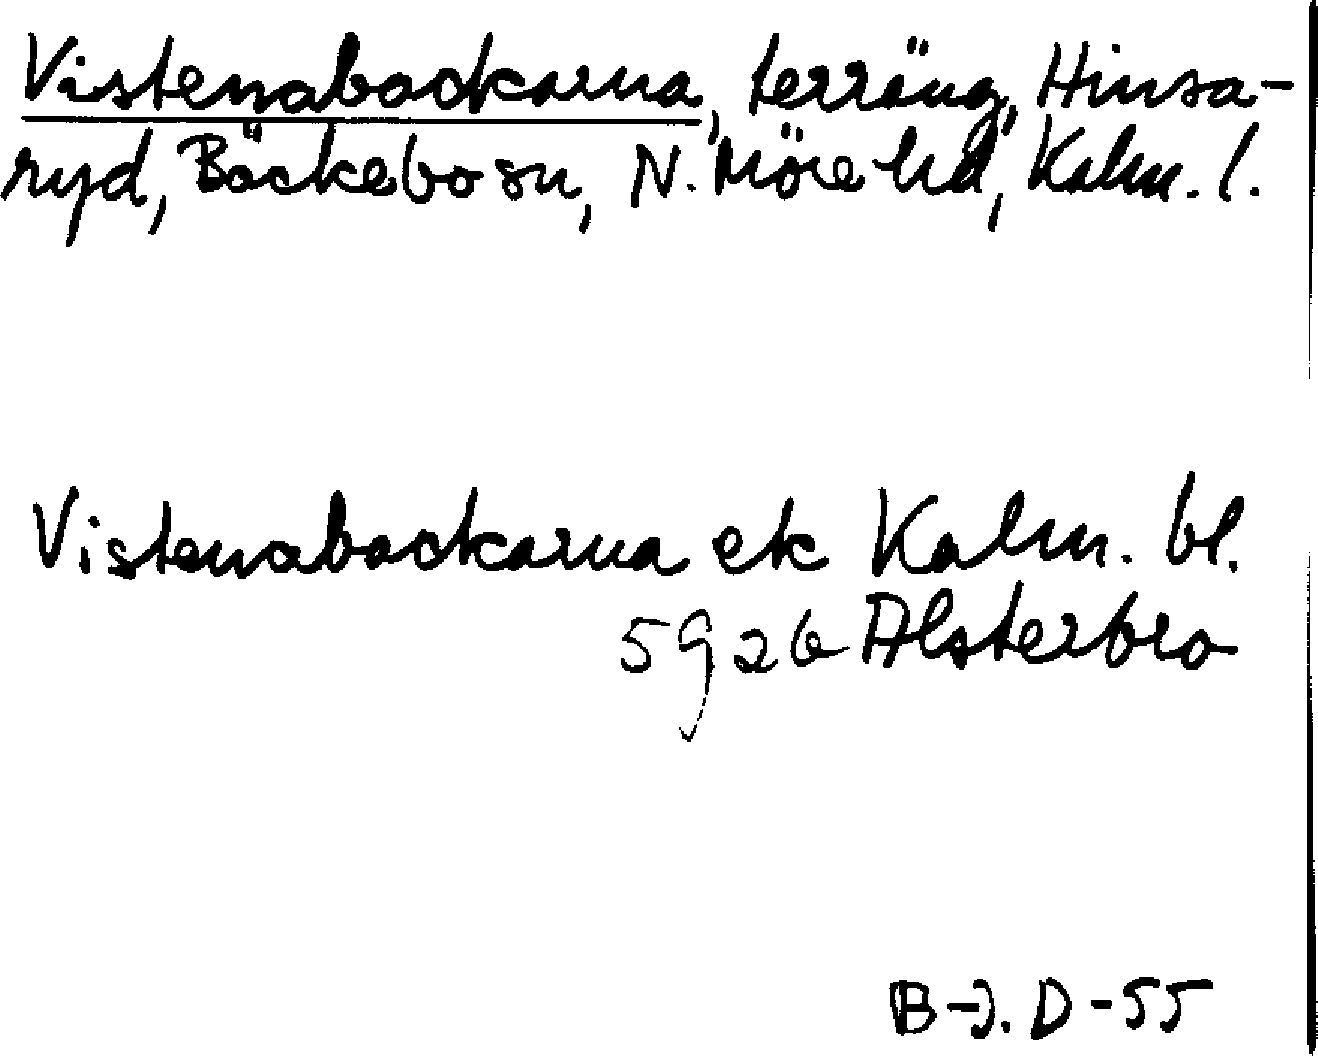 Vistenabackarna, terräng, Hinsa-
ryd, Bäckebo sn, N. Möre hd, Kalm. l.
Vistenabackarna ek Kalm. bl.
5926 Alsterbro
B-J. D-55